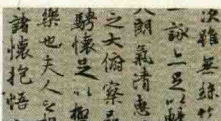 次雖無絲竹
一詠亦足以暢
天朗氣清惠
之大俯察品
騁懷足以極
樂也夫人之相
諸懷抱悟